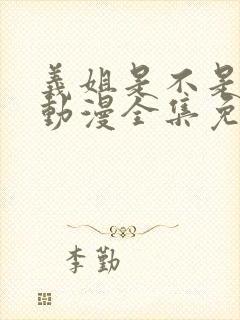 義姐是不是
動漫全集免
李勤